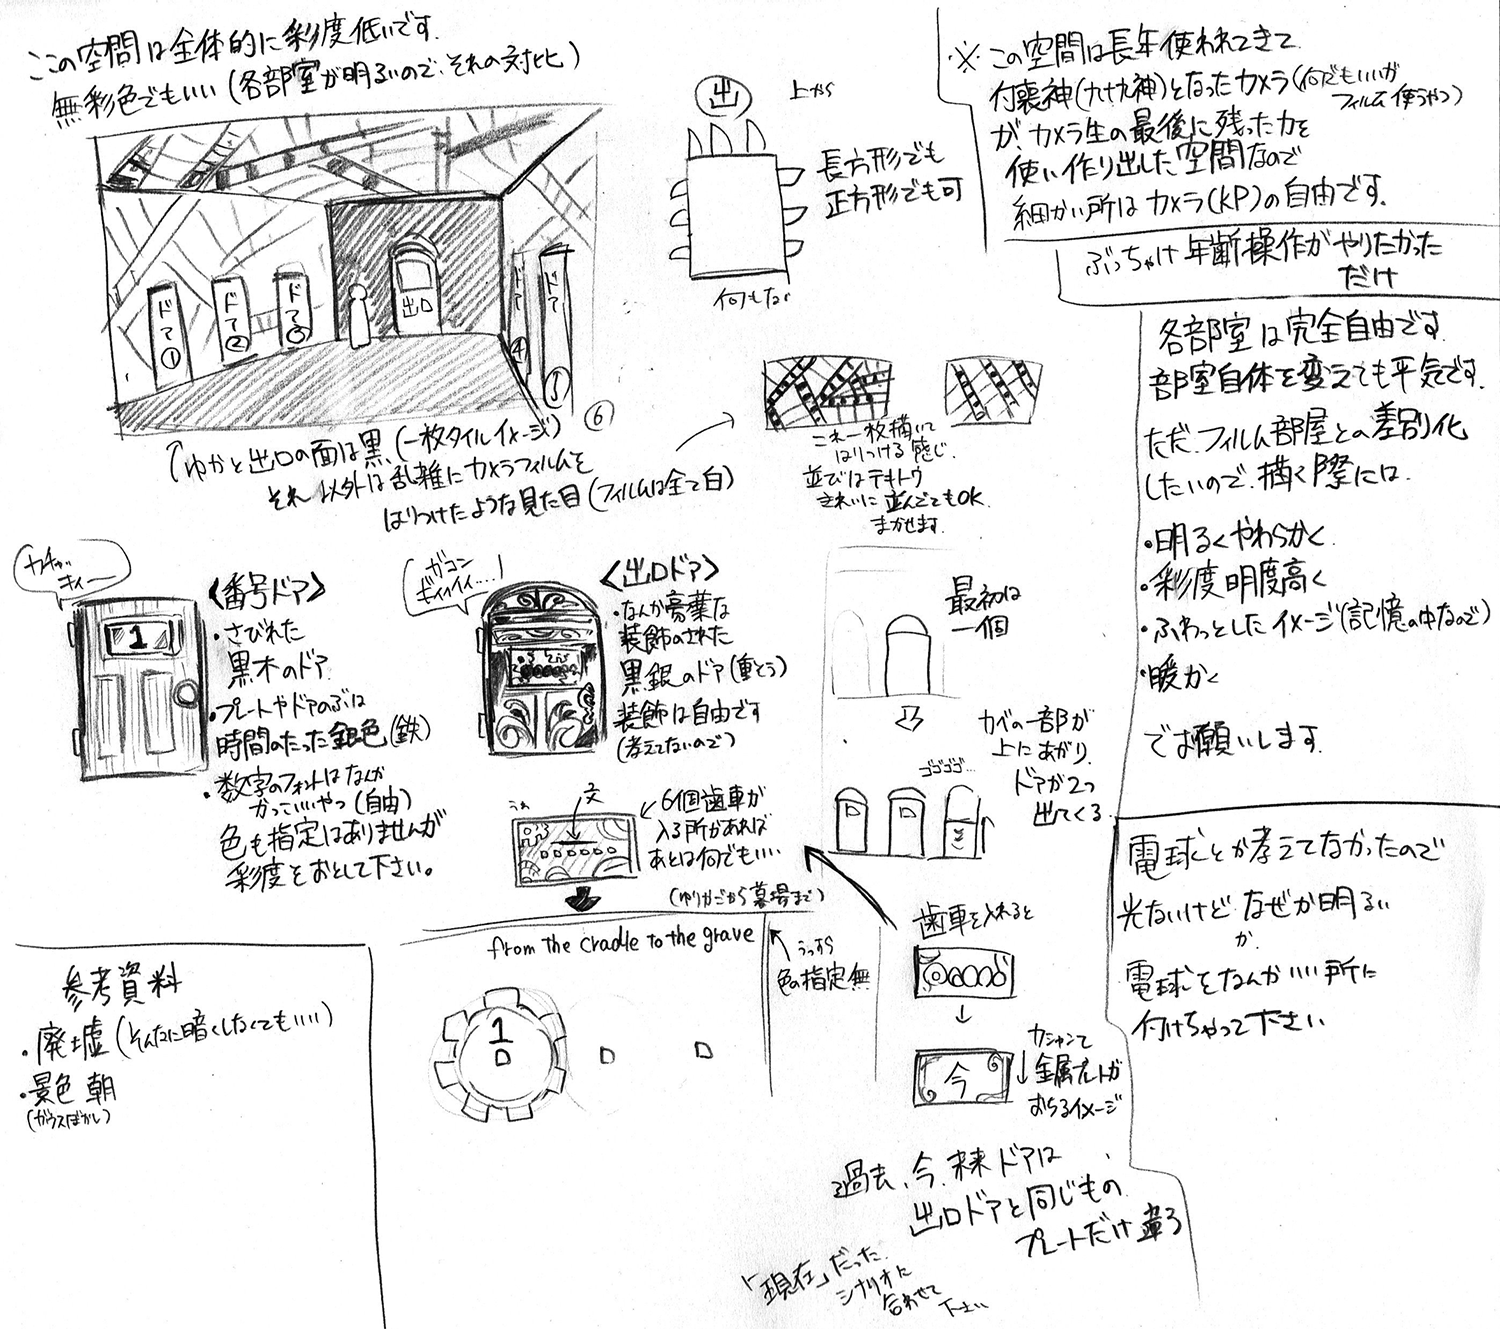 ここの空間は全体的に彩度低いです.
無彩色でもいい(各部室が明るいので、それの対比)
ドア①
ドア②
ドア③
出口
ドア④
ドア⑤
⑥
↑ゆかと出口の面は黒(一枚タイルイメージ)
それ以外は乱雑にカメラフィルムを
はりつけたような見た目(フィルムは全て白)
出
上から
長方形でも
正方形でも可
何もない
これ一枚描いて
はりつける感じ.
並びはテキトウ
きれいに並んでてもOK.
まかせます.
※この空間は長年使われてきて
付喪神(九十九神)となったカメラ(何でもいいが
フィルム使うやつ)
が、カメラ生の最後に残った力を
使い作り出した空間なので
細かい所はカメラ(KP)の自由です.
ぶっちゃけ年齢操作がやりたかった
だけ
各部室は完全自由です.
部室自体を変えても平気です.
ただ、フィルム部屋との差別化
したいので、描く際には.
・明るくやわらかく
・彩度明度高く
・ふわっとしたイメージ(記憶の中なので)
・暖かく
でお願いします.
電球とか考えてなかったので
光ないけど なぜか明るい
か.
電球をなんかいい所に
付けちゃって下さい
カチャッ
キィー
1
<番号ドア>
・さびれた
黒木のドア.
・プレートやドアのぶは
時間のたった銀色(鉄)
・数字のフォントはなんか
かっこいいやつ(自由)
色も指定はありませんが
彩度をおとして下さい。
ガコン
ギィィイイ....!
<出口ドア>
・なんか豪華な
装飾のされた
黒銀のドア(重そう)
装飾は自由です
(考えてないので)
文
←6個歯車が
入る所があれば
あとは何でもいい
(ゆりかごから墓場まで)
from the cradle to the grave
うっすら
色の指定無
1
最初は
一個
カベの一部が
上にあがり.
ドアが2つ
出てくる
ゴゴゴゴ...
歯車を入れると
今
カシャンて
金属プレートが
おちるイメージ
過去、今、未来ドアは
出口ドアと同じもの.
プレートだけ違う
「現在」だった.
シナリオに
合わせて
下さい
参考資料
・廃墟(そんなに暗くしなくてもいい)
・景色 朝
(ガウスぼかし)